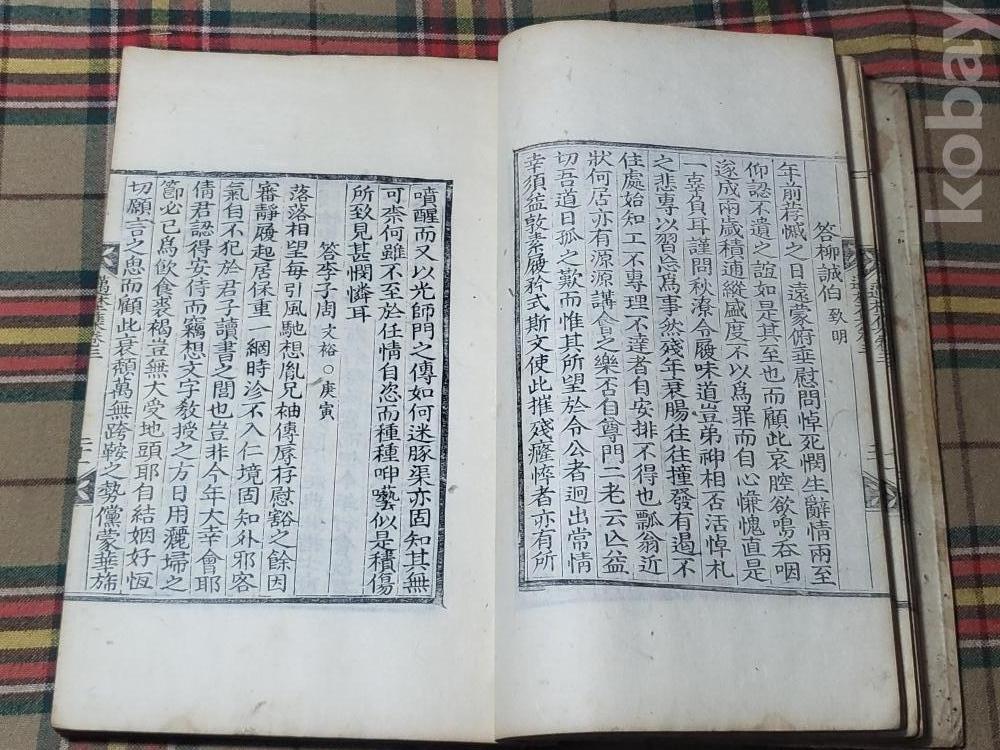 答柳誠伯 致明
年前荐慽之日遠蒙俯垂慰問悼死憫生辭情兩至
仰認不遺之誼如是其至也而顧此哀腔欲鳴吞咽
遂成兩歲積逋縱盛度不以爲罪而自心慊愧直是
一辜負耳謹問秋潦令履味道豈弟神相否活悼札
之悲專以習忘爲事然殘年衰腸往往撞發有遏不
住處始知工不專理不達者有安排不得也瓢翁近
狀何居亦有源源講會之樂否自尊門二老云亡益
切吾道日孤之歎而惟其所望於令公者迥出常情
幸須益敦素履矜式斯文使此摧殘癃悴者亦有所
噴醒而又以光師門之傳如何迷豚渠亦固知其無
可柰何雖不至於任情自恣而種種呻囈似是積傷
所致見甚憫憐耳
答李子周 文裕○庚寅
落落相望每引風馳想胤兄袖傳辱存慰豁之餘因
審靜履起居保重一網時沴不入仁境固知外邪客
氣自不犯於君子讀書之閭也豈非今年大幸會耶
倩君認得安侍而竊想文字教授之方日用灑掃之
節必已爲飮食裘褐豈無大受地頭耶自結姻好恆
切願言之思而顧此衰頹萬無跨鞍之勢儻蒙華施
kobay